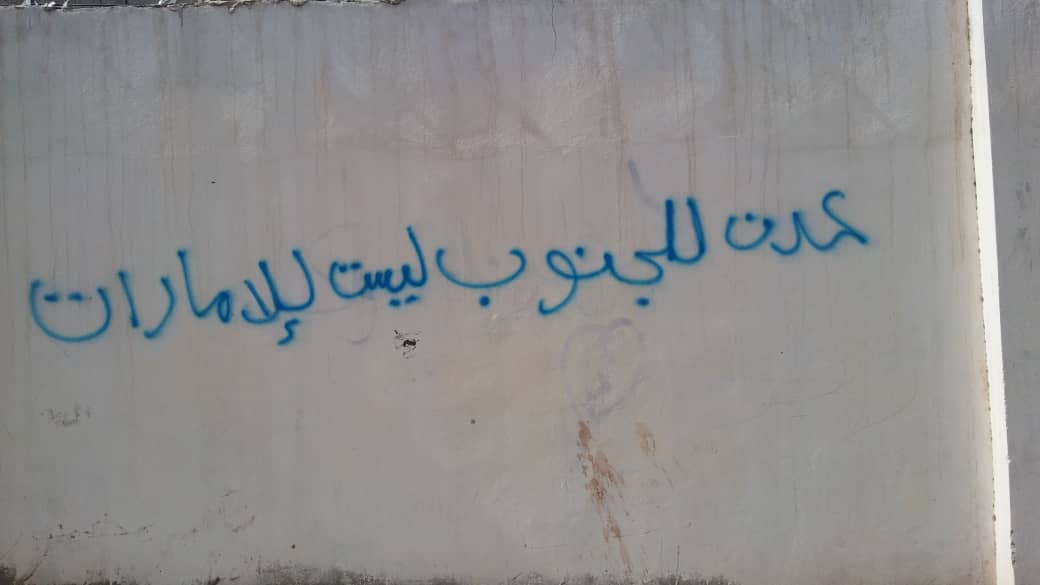 عدن للجنوب ليست للإمارات